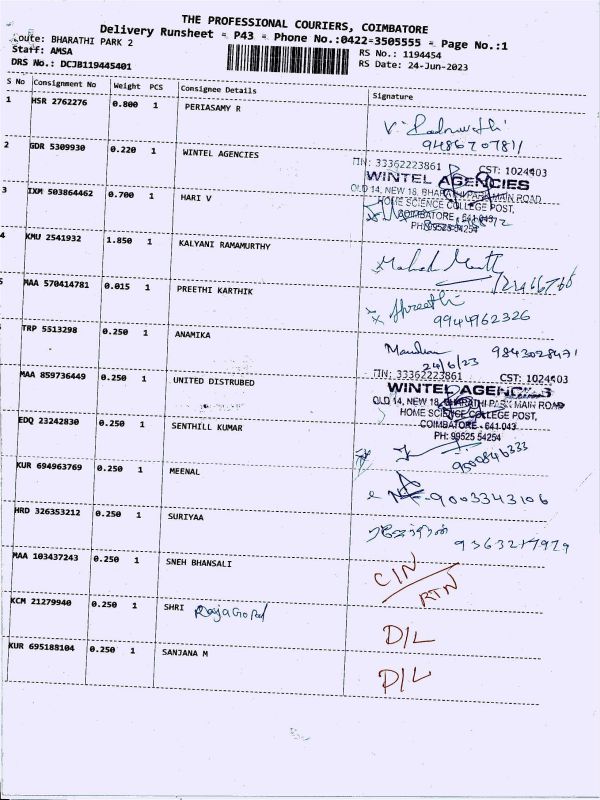 THE PROFESSIONAL COURIERS, COIMBATORE
Delivery Runsheet - P43 - Phone No.:0422-3505555 - Page No.:1
Route: BHARATHI PARK 2
RS No.: 1194454
Staff: AMSA
RS Date: 24-Jun-2023
DRS No.: DCJB119445401
S No Consignment No Weight PCS Consignee Details Signature
1 HSR 2762276 0.800 1 PERIASAMY R
9486707811
2 GDR 5309930 0.220 1 WINTEL AGENCIES
TIN: 33362223861 CST: 1024403
WINTEL AGENCIES
OLD 14, NEW 18, BHARATHI PARK MAIN ROAD
HOME SCIENCE COLLEGE POST,
COIMBATORE - 641 043
PH: 99525 54254
3 IXM 503864462 0.700 1 HARI V
4 KMU 2541932 1.850 1 KALYANI RAMAMURTHY
5 MAA 570414781 0.015 1 PREETHI KARTHIK
Preethi
9944962326
TRP 5513298 0.250 1 ANAMIKA
9843028471
24/6/23
MAA 859736449 0.250 1 UNITED DISTRUBED
TIN: 33362223861 CST: 1024403
WINTEL AGENCIES
OLD 14, NEW 18, BHARATHI PARK MAIN ROAD
HOME SCIENCE COLLEGE POST,
COIMBATORE - 641 043
PH: 99525 54254
EDQ 23242830 0.250 1 SENTHILL KUMAR
9500846333
KUR 694963769 0.250 1 MEENAL
9003343106
HRD 326353212 0.250 1 SURIYAA
9363217979
MAA 103437243 0.250 1 SNEH BHANSALI
CIN
RTN
KCM 21279940 0.250 1 SHRI Rajagopal
D/L
KUR 695188104 0.250 1 SANJANA M
D/L